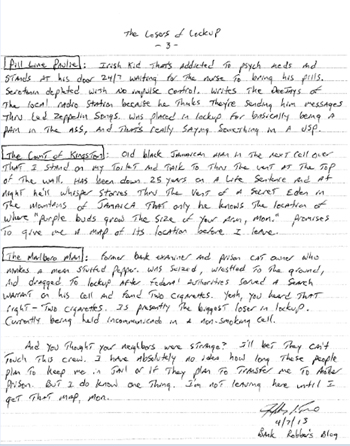 The Losers of Lockup
- 3 -
Pill Line Paulie: Irish kid that's addicted to psych meds and
stands at his door 24/7 waiting for the nurse to bring his pills.
Serotonin depleted with no impulse control. Writes the DeeJays of
the local radio station because he thinks they're sending him messages
thru Led Zeppelin songs. Was placed in lockup for basically being a
pain in the ass, and that's really saying something in a USP.
The Count of Kingston: Old black Jamaican man in the next cell over
that I stand on my toilet and talk to thru the vent at the top
of the wall. Has been down 25 years on a life sentence and at
night he'll whisper stories thru the vent of a secret Eden in
the mountains of Jamaica that only he knows the location of
where "purple buds grow the size of your arm, mon." Promises
to give me a map of its location before I leave.
The Marlboro Man: Former bank examiner and prison cat owner who
makes a mean stuffed pepper. Was seized, wrestled to the ground,
and dragged to lockup after federal authorities served a search
warrant on his cell and found two cigarettes. Yeah, you heard that
right - two cigarettes. Is presently the biggest loser in lockup.
Currently being held incommunicado in a non-smoking cell.
And you thought your neighbors were strange? I'll bet they can't
touch this crew. I have absolutely no idea how long these people
plan to keep me in jail or if they plan to transfer me to another
prison. But I do know one thing. I'm not leaving here until I
get that map, mon.
4/7/13
Bank Robber's Blog